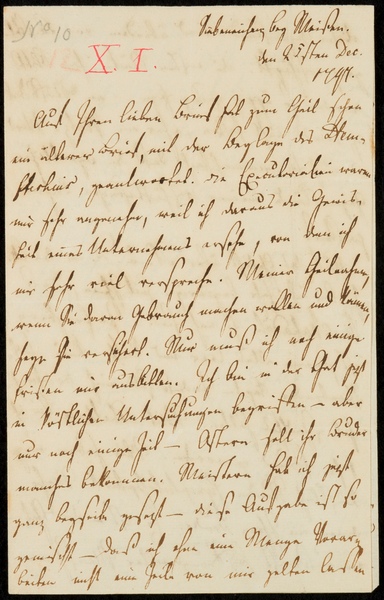 No. 10
XI.
Siebeneichen bey Meißen.
den 25sten Dec.
1797.
Auf Ihren lieben Brief hat zum Theil schon
ein älterer Brief, mit der Beylage des
geantwortet. Die waren
mir sehr angenehm, weil ich daraus die Gewis-
heit eines Unternehmens ersehe, von dem ich
mir sehr viel verspreche. Meiner Theilnahme,
wenn Sie davon Gebrauch machen wollen und können,
seyn Sie versichert. Nur muß ich noch einige
Fristen mir ausbitten. Ich bin in der That jezt
in Untersuchungen begriffen — aber
nur noch einige Zeit — Ostern soll ihr Bruder
manches bekommen. Meistern hab ich jezt
ganz beyseite gesezt — diese Aufgabe ist so
gemischt — daß ich ohne eine Menge Vorar-
beiten nicht eine Zeile von mir gelten lassen